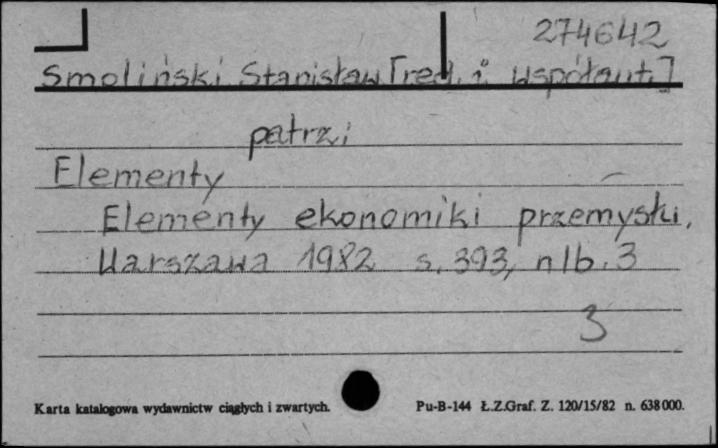 274642
Smoliński Stanisław [red. i współaut.]
patrz:
Elementy
Elementy ekonomiki przemysłu.
Warszawa 1982 s. 393, nlb. 3
3
Karta katalogowa wydawnictw ciągłych i zwartych.
Pu-B-144 Ł.Z.Graf. Z. 120/15/82 n. 638000.